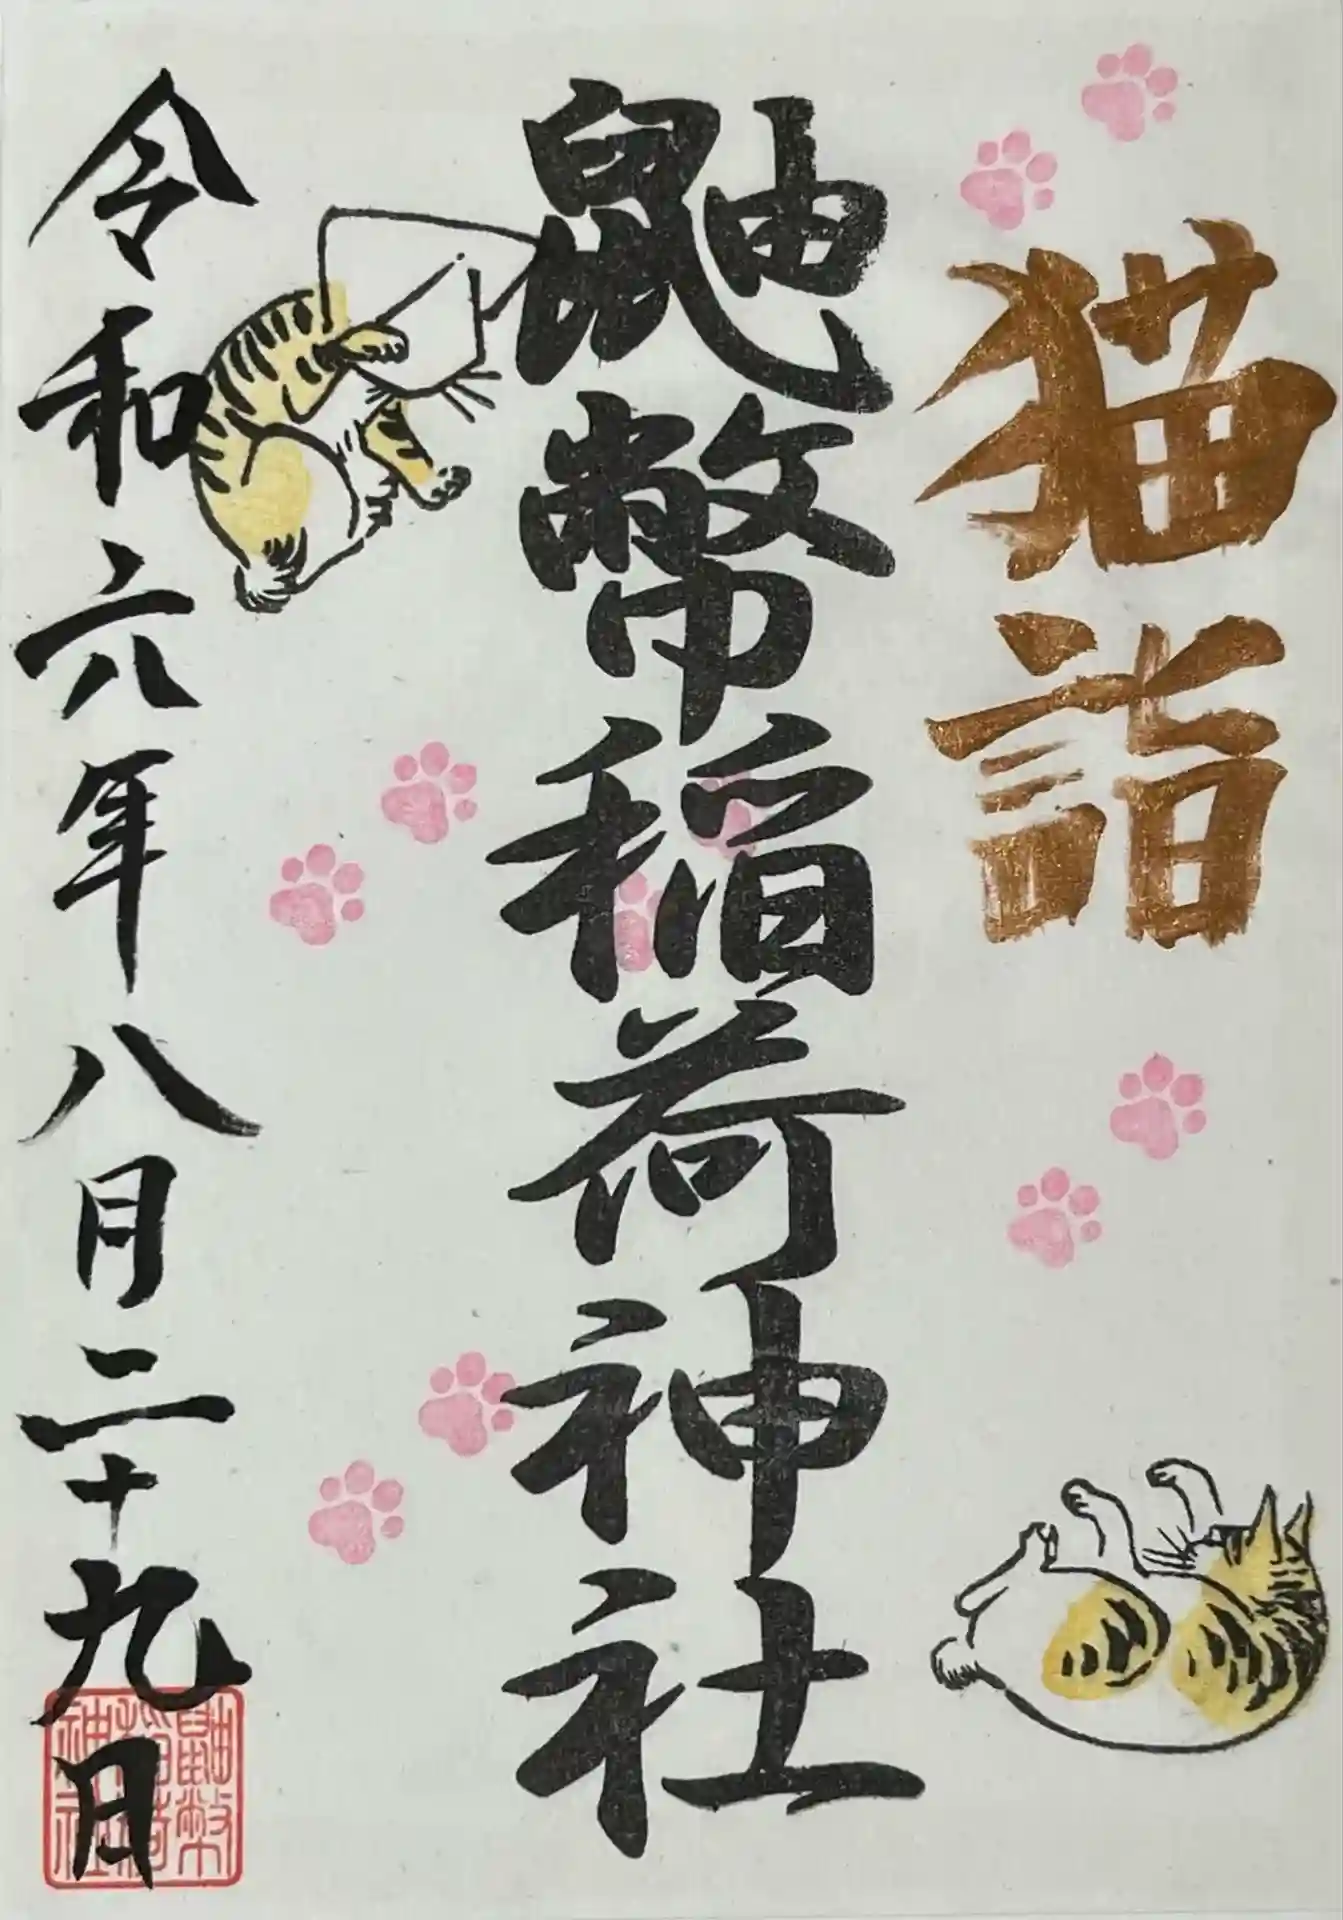 猫詣
鼬幣稲荷神社
令和六年八月二十九日
鼬幣
稲荷
神社